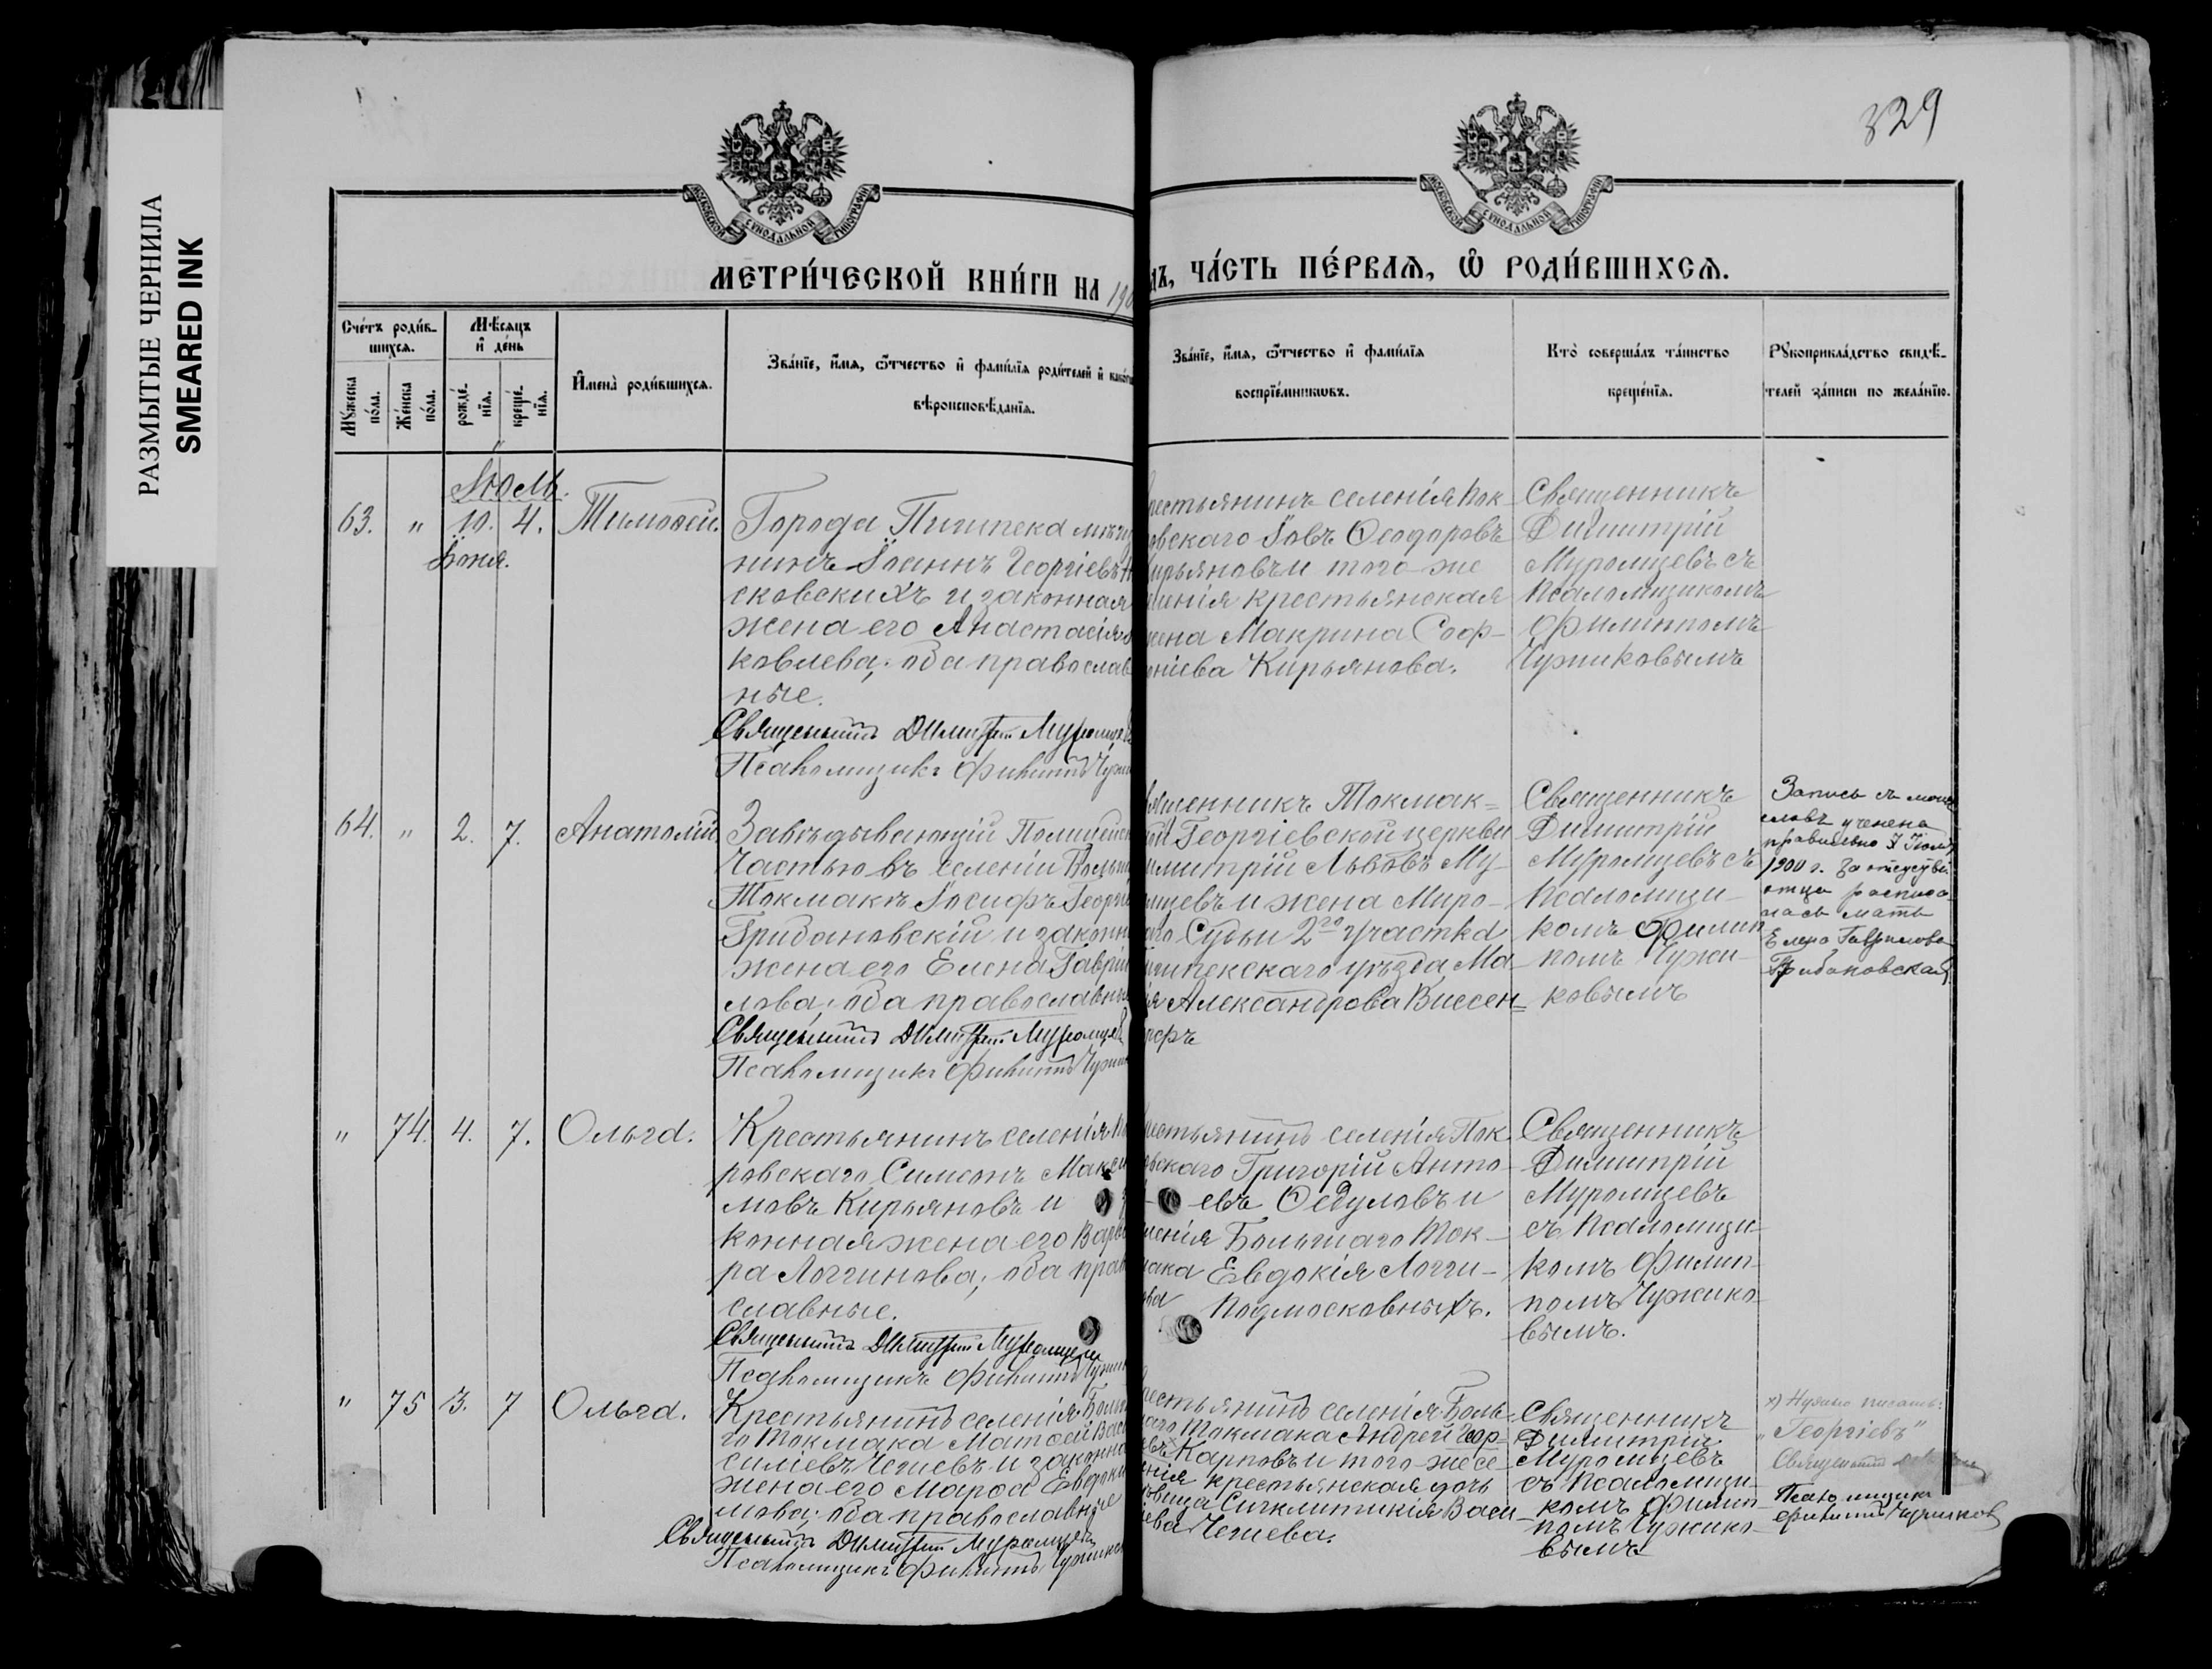 329
РАЗМЫТЫЕ ЧЕРНИЛА
SMEARED INK
МОСКОВСКОЙ СУНОДАЛЬНОЙ ТИПОГРАФІИ
МОСКОВСКОЙ СУНОДАЛЬНОЙ ТИПОГРАФІИ
МЕТРИ́ЧЕСКОЙ КНИ́ГИ НА 190
ДЪ, ЧА́СТЬ ПЕ́РВАѦ, Ѡ҆ РОДИ́ВШИХСѦ.
Сче́тъ роди́в-
шихсѧ.
Мꙋ́жеска
по́ла.
Же́нска
по́ла.
Мѣ́сѧцъ
и҆ де́нь
рожде́-
нїѧ.
креще́-
нїѧ.
И҆мена̀ роди́вшихсѧ.
Зва́нїе, и҆́мѧ, ѻ҆́тчество и҆ фами́лїѧ роди́телей и҆ како́гѡ
вѣроисповѣ́данїѧ.
Зва́нїе, и҆́мѧ, ѻ҆́тчество и҆ фами́лїѧ
воспрїе́мникѡвъ.
Кто̀ соверша́лъ та́инство
креще́нїѧ.
Рꙋкоприкла́дство свидѣ́-
телей за́писи по жела́нїю.
Іюль.
63. " 10. 4. Тимоѳей.
Іюня.
Города Пишпека мѣща
нинъ Іоаннъ Георгіевъ
сковскихъ и законная
жена его Анастасія
ковлева; оба православ
ные.
Священникъ Димитрій Муромцевъ
Псаломщикъ Филиппъ Чужи
рестьянинъ селенія Пок-
овскаго Іовъ Ѳеодоровъ
ирьяновъ и того же
ленія крестьянская
жена Макрина Соф-
оніева Кирьянова.
Священникъ
Димитрій
Муромцевъ съ
псаломщикомъ
Филиппомъ
Чужиковымъ
64. " 2. 7. Анатолій.
Завѣдывающій Полицейск
Частью въ селеніи Больш
Токмакъ Іосифъ Георгіе
Грибановскій и законн
жена его Елена Гаврі
лова; оба православны
Священникъ Димитрій Муромцев
Псаломщикъ Филиппъ Чужи
вященникъ Токмак=
ой Георгіевской церкви
имитрій Львовъ Му-
мцевъ и жена Миро-
аго Судьи 2го участка
ишпекскаго уѣзда Ма-
ія Александрова Виссен-
рфъ
Священникъ
Димитрій
Муромцевъ съ
псаломщи-
комъ Филип
помъ Чужи-
ковымъ
Запись съ моихъ
словъ учинена
правильно 7 Іюля
1900 г. За отсутств
отца расписа
лась мать
Елена Гаврилова
Грибановская
" 74. 4. 7. Ольга.
Крестьянинъ селенія По
ровскаго Симеонъ Макси
мовъ Кирьяновъ и
конная жена его Варва
ра Логгинова; оба прав
славные.
Священникъ Димитрій Муромцевъ
Псаломщикъ Филиппъ Чужи
рестьянинъ селенія Пок-
овскаго Григорій Анто-
евъ Ѳедуловъ и
ленія Большаго Ток-
мака Евдокія Логги-
ова Подмосковныхъ.
Священникъ
Димитрій
Муромцевъ
съ псаломщи-
комъ Филип-
помъ Чужико-
вымъ.
" 75 3. 7 Ольга.
Крестьянинъ селенія Больш
го Токмака Матѳей Вас
силіевъ Чечиевъ и законна
жена его Марѳа Евдоки
мова; оба православные
Священникъ Димитрій Муромцевъ
Псаломщикъ Филиппъ Чужико
рестьянинъ селенія Боль-
шаго Токмака Андрей Геор-
евъ Карповъ и того же се
ленія крестьянская дочь
ѣвица Синклитикія Васи-
іева Чечиева.
Священникъ
Димитрій
Муромцевъ
съ псаломщи-
комъ Филип-
помъ Чужико-
вымъ
х) Нужно писать:
„Георгіевъ"
Священникъ
Псаломщикъ
Филиппъ Чужиков